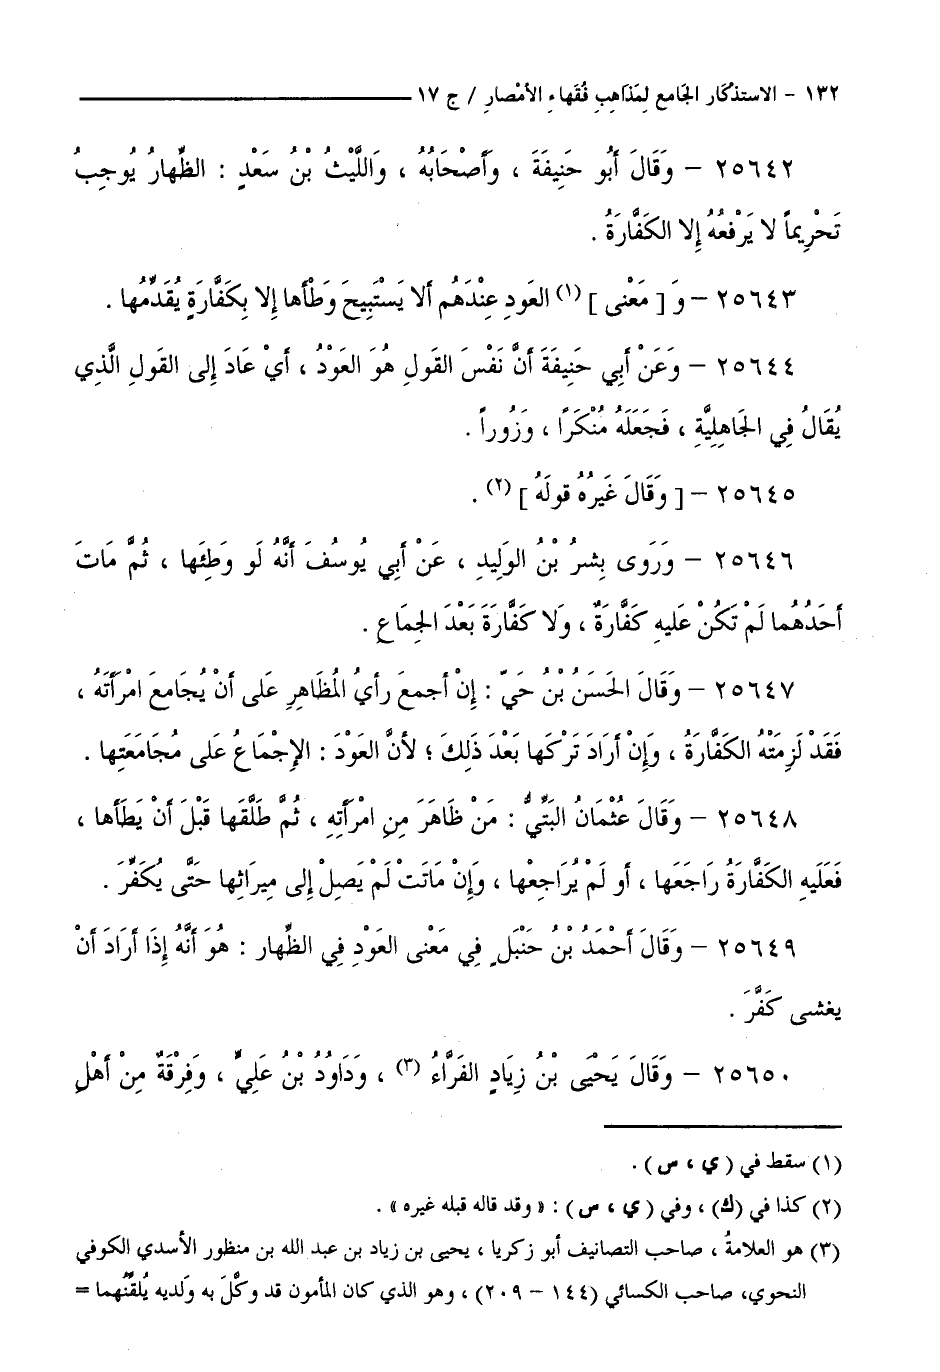 ١٣٢ - الاستذكار الجامع لِمَذاهِبِ فُقَهاءِ الأمْصارِ / ج ١٧
٢٥٦٤٢ – وَقَالَ أَبُو حَنِيفَةَ ، وَأَصْحَابُهُ ، وَاللَّيْثُ بْنُ سَعْدٍ : الظِّهارُ يُوجِبُ
تَحْرِيماً لا يَرْفَعُهُ إِلا الكَفَّارَةُ .
٢٥٦٤٣ – وَ [ مَعْنى ] (١) العَودِ عِنْدَهُم ألا يَسْتَبِيحَ وَطْأَها إِلا بِكَفَّارَةٍ يُقَدِّمُها .
٢٥٦٤٤ – وَعَنْ أَبِي حَنِيفَةَ أَنَّ نَفْسَ القَولِ هُوَ العَوْدُ ، أَيْ عَادَ إِلى القَولِ الَّذِي
يُقَالُ فِي الجَاهِلِيَّةِ ، فَجَعَلَهُ مُنْكَرًا ، وَزُوراً .
٢٥٦٤٥ – [ وَقَالَ غَيرُهُ قولَهُ ] (٢) .
٢٥٦٤٦ – وَرَوَى بِشرُ بْنُ الوَلِيدِ ، عَنْ أَبِي يُوسُفَ أَنَّهُ لَو وَطِئَها ، ثُمَّ مَاتَ
أَحَدُهُما لَمْ تَكُنْ عَليهِ كَفَّارَةٌ ، وَلا كَفَّارَةَ بَعْدَ الجِمَاعِ .
٢٥٦٤٧ – وَقَالَ الحَسَنُ بْنُ حَيّ : إِنْ أجمعَ رَأيُ المُظَاهِرِ عَلى أَنْ يُجَامِعَ امْرَأَتَهُ ،
فَقَدْ لَزِمَتْهُ الكَفَّارَةُ ، وَإِنْ أَرَادَ تَرْكَها بَعْدَ ذَلِكَ ؛ لأنَّ العَوْدَ : الإِجْمَاعُ عَلى مُجَامَعَتِها .
٢٥٦٤٨ – وَقَالَ عُثْمَانُ البَتِّيُّ : مَنْ ظَاهَرَ مِنِ امْرَأَتِهِ ، ثُمَّ طَلَّقَها قَبْلَ أَنْ يَطَأَها ،
فَعَلَيهِ الكَفَّارَةُ رَاجَعَها ، أو لَمْ يُرَاجِعْها ، وَإِنْ مَاتَتْ لَمْ يَصِلْ إِلى مِيرَاثِها حَتَّى يُكَفِّرَ .
٢٥٦٤٩ – وَقَالَ أَحْمَدُ بْنُ حَنْبَلٍ فِي مَعْنى العَوْدِ فِي الظِّهار : هُوَ أَنَّهُ إِذَا أَرَادَ أَنْ
يغشى كَفَّرَ .
٢٥٦٥٠ – وَقَالَ يَحْيَى بْنُ زِيَادٍ الفَرَّاءُ (٣) ، وَدَاوُدُ بْنُ عَلِيٍّ ، وَفِرْقَةٌ مِنْ أَهْلِ
(١) سقط في ( ي ، س ) .
(٢) كذا في (ك) ، وفي ( ي ، س ) : « وقد قاله قبله غيره » .
(٣) هو العلامةُ ، صاحب التصانيف أبو زكريا ، يحيى بن زياد بن عبد الله بن منظور الأسدي الكوفي
النحوي، صاحب الكسائي (١٤٤ – ٢٠٩) ، وهو الذي كان المأمون قد وكَّلَ به ولديه يُلقِّنُهما =